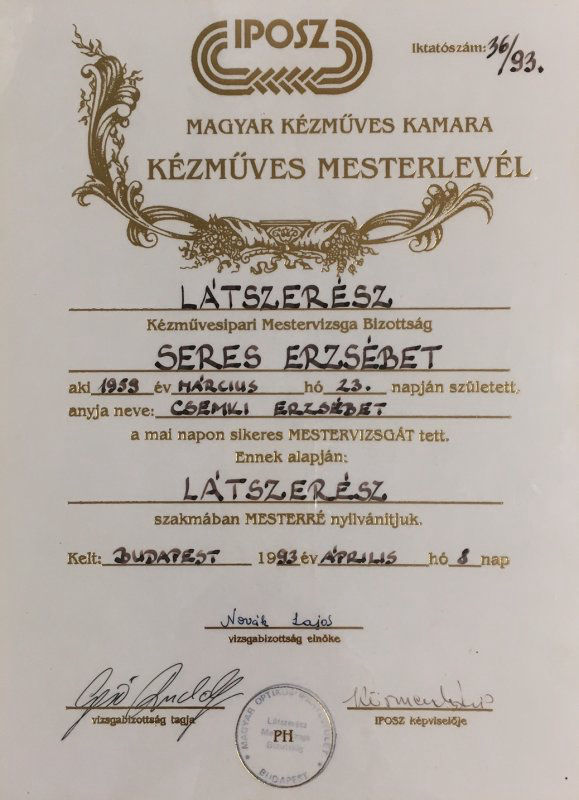 IPOSZ
Iktatószám: 36/93.
MAGYAR KÉZMŰVES KAMARA
KÉZMŰVES MESTERLEVÉL
LÁTSZERÉSZ
Kézművesipari Mestervizsga Bizottság
SERES ERZSÉBET
aki 1959 év MÁRCIUS hó 23. napján született,
anyja neve: CSEMKI ERZSÉBET
a mai napon sikeres MESTERVIZSGÁT tett.
Ennek alapján:
LÁTSZERÉSZ
szakmában MESTERRÉ nyilvánítjuk.
Kelt: BUDAPEST 1993 év ÁPRILIS hó 8 nap
Novák Lajos
vizsgabizottság elnöke
vizsgabizottság tagja
IPOSZ képviselője
MAGYAR
Látszerész
Bizottság
PH
BUDAPEST